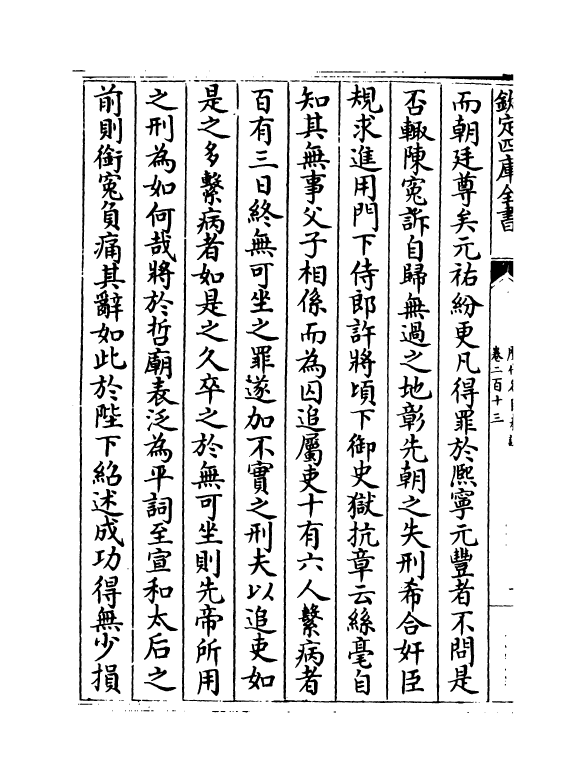 欽定四庫全書
卷二百十三
而朝廷尊矣元祐紛更凡得罪於熈寧元豐者不問是
否輙陳寃訴自歸無過之地彰先朝之失刑希合奸臣
規求進用門下侍郎許將頃下御史獄抗章云絲毫自
知其無事父子相係而為囚追屬吏十有六人繫病者
百有三日終無可坐之罪遂加不實之刑夫以追吏如
是之多繫病者如是之久卒之於無可坐則先帝所用
之刑為如何哉將於哲廟表泛為平詞至宣和太后之
前則銜寃負痛其辭如此於陛下紹述成功得無少損